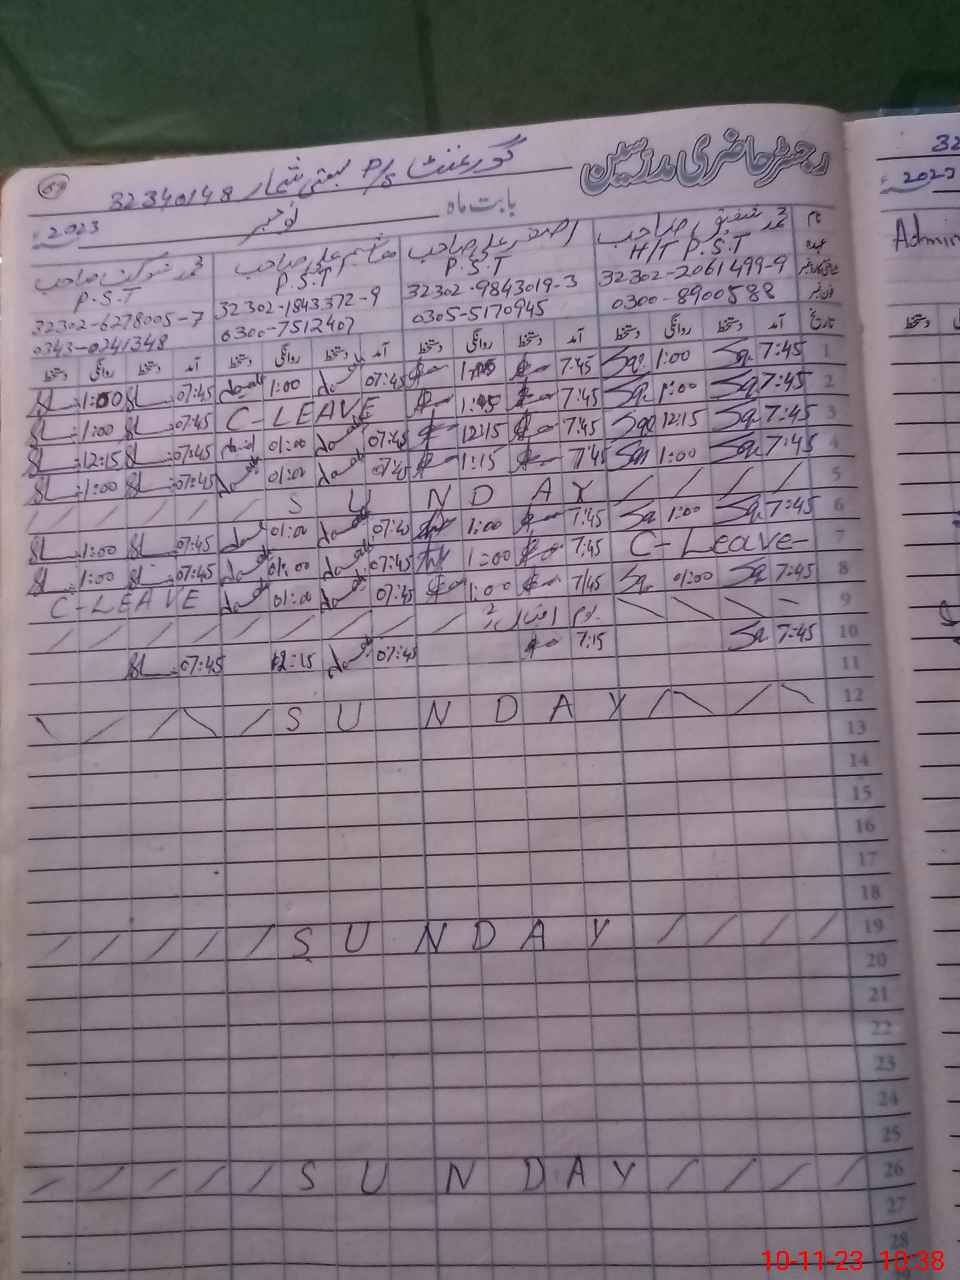 رجسٹر حاضری مدرسین
گورنمنٹ P/S بستی شمار 32340148
59
بابت ماہ نومبر 2023ء
نام محمد شفیق صاحب اصغر علی صاحب ہاشم علی صاحب محمد شوکت صاحب
عہدہ H/T P.S.T P.S.T P.S.T P.S.T
32302-2061499-9 32302-9843019-3 32302-1843372-9 32302-6278005-7
0300-8900588 0305-5170945 0300-7512407 0343-0241348
تاریخ آمد دستخط روانگی دستخط آمد دستخط روانگی دستخط آمد دستخط روانگی دستخط آمد دستخط روانگی دستخط
1 7:45 1:00 7:45 07:45 1:00 07:45 1:00
2 7:45 1:00 7:45 C-LEAVE 07:45 1:00
3 7:45 12:15 7:45 12:15 07:45 01:00 07:45 12:15
4 7:45 1:00 7:45 1:15 07:45 01:00 07:45 1:00
5 SUNDAY
6 7:45 1:00 7:45 1:00 07:45 01:00 07:45 1:00
7 C-Leave 7:45 1:00 07:45 01:00 07:45 1:00
8 7:45 01:00 7:45 1:00 07:45 01:00 C-LEAVE
9 یوم اقبال
10 7:45 7:15 07:45 12:15 07:45
11
12 SUNDAY
13
14
15
16
17
18
19 SUNDAY
20
21
22
23
24
25
26 SUNDAY
27
28
32
2023
Admin
10-11-23 10:38